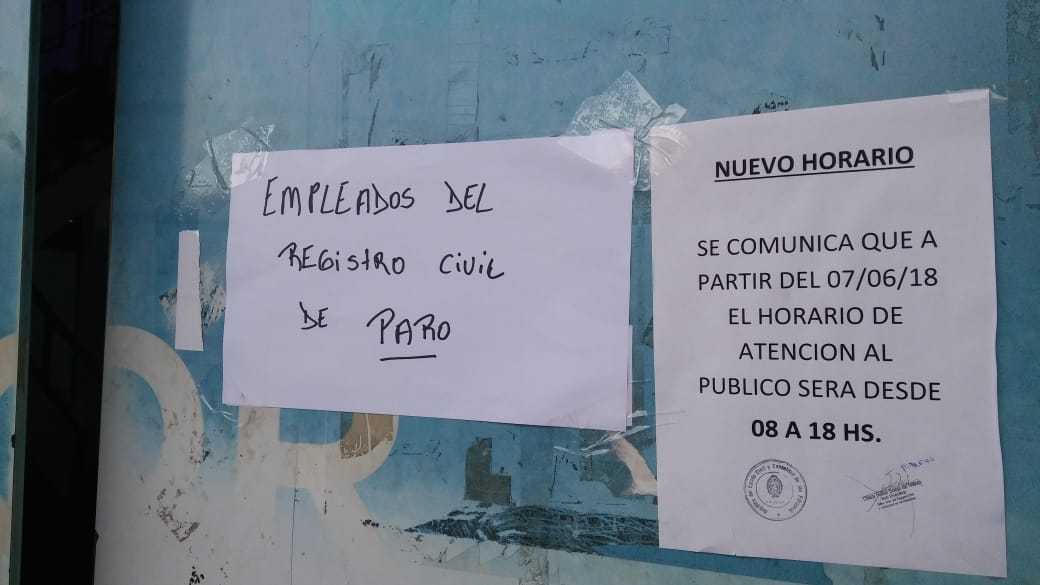 EMPLEADOS DEL
REGISTRO CIVIL
DE PARO
NUEVO HORARIO
SE COMUNICA QUE A
PARTIR DEL 07/06/18
EL HORARIO DE
ATENCION AL
PUBLICO SERA DESDE
08 A 18 HS.
OR